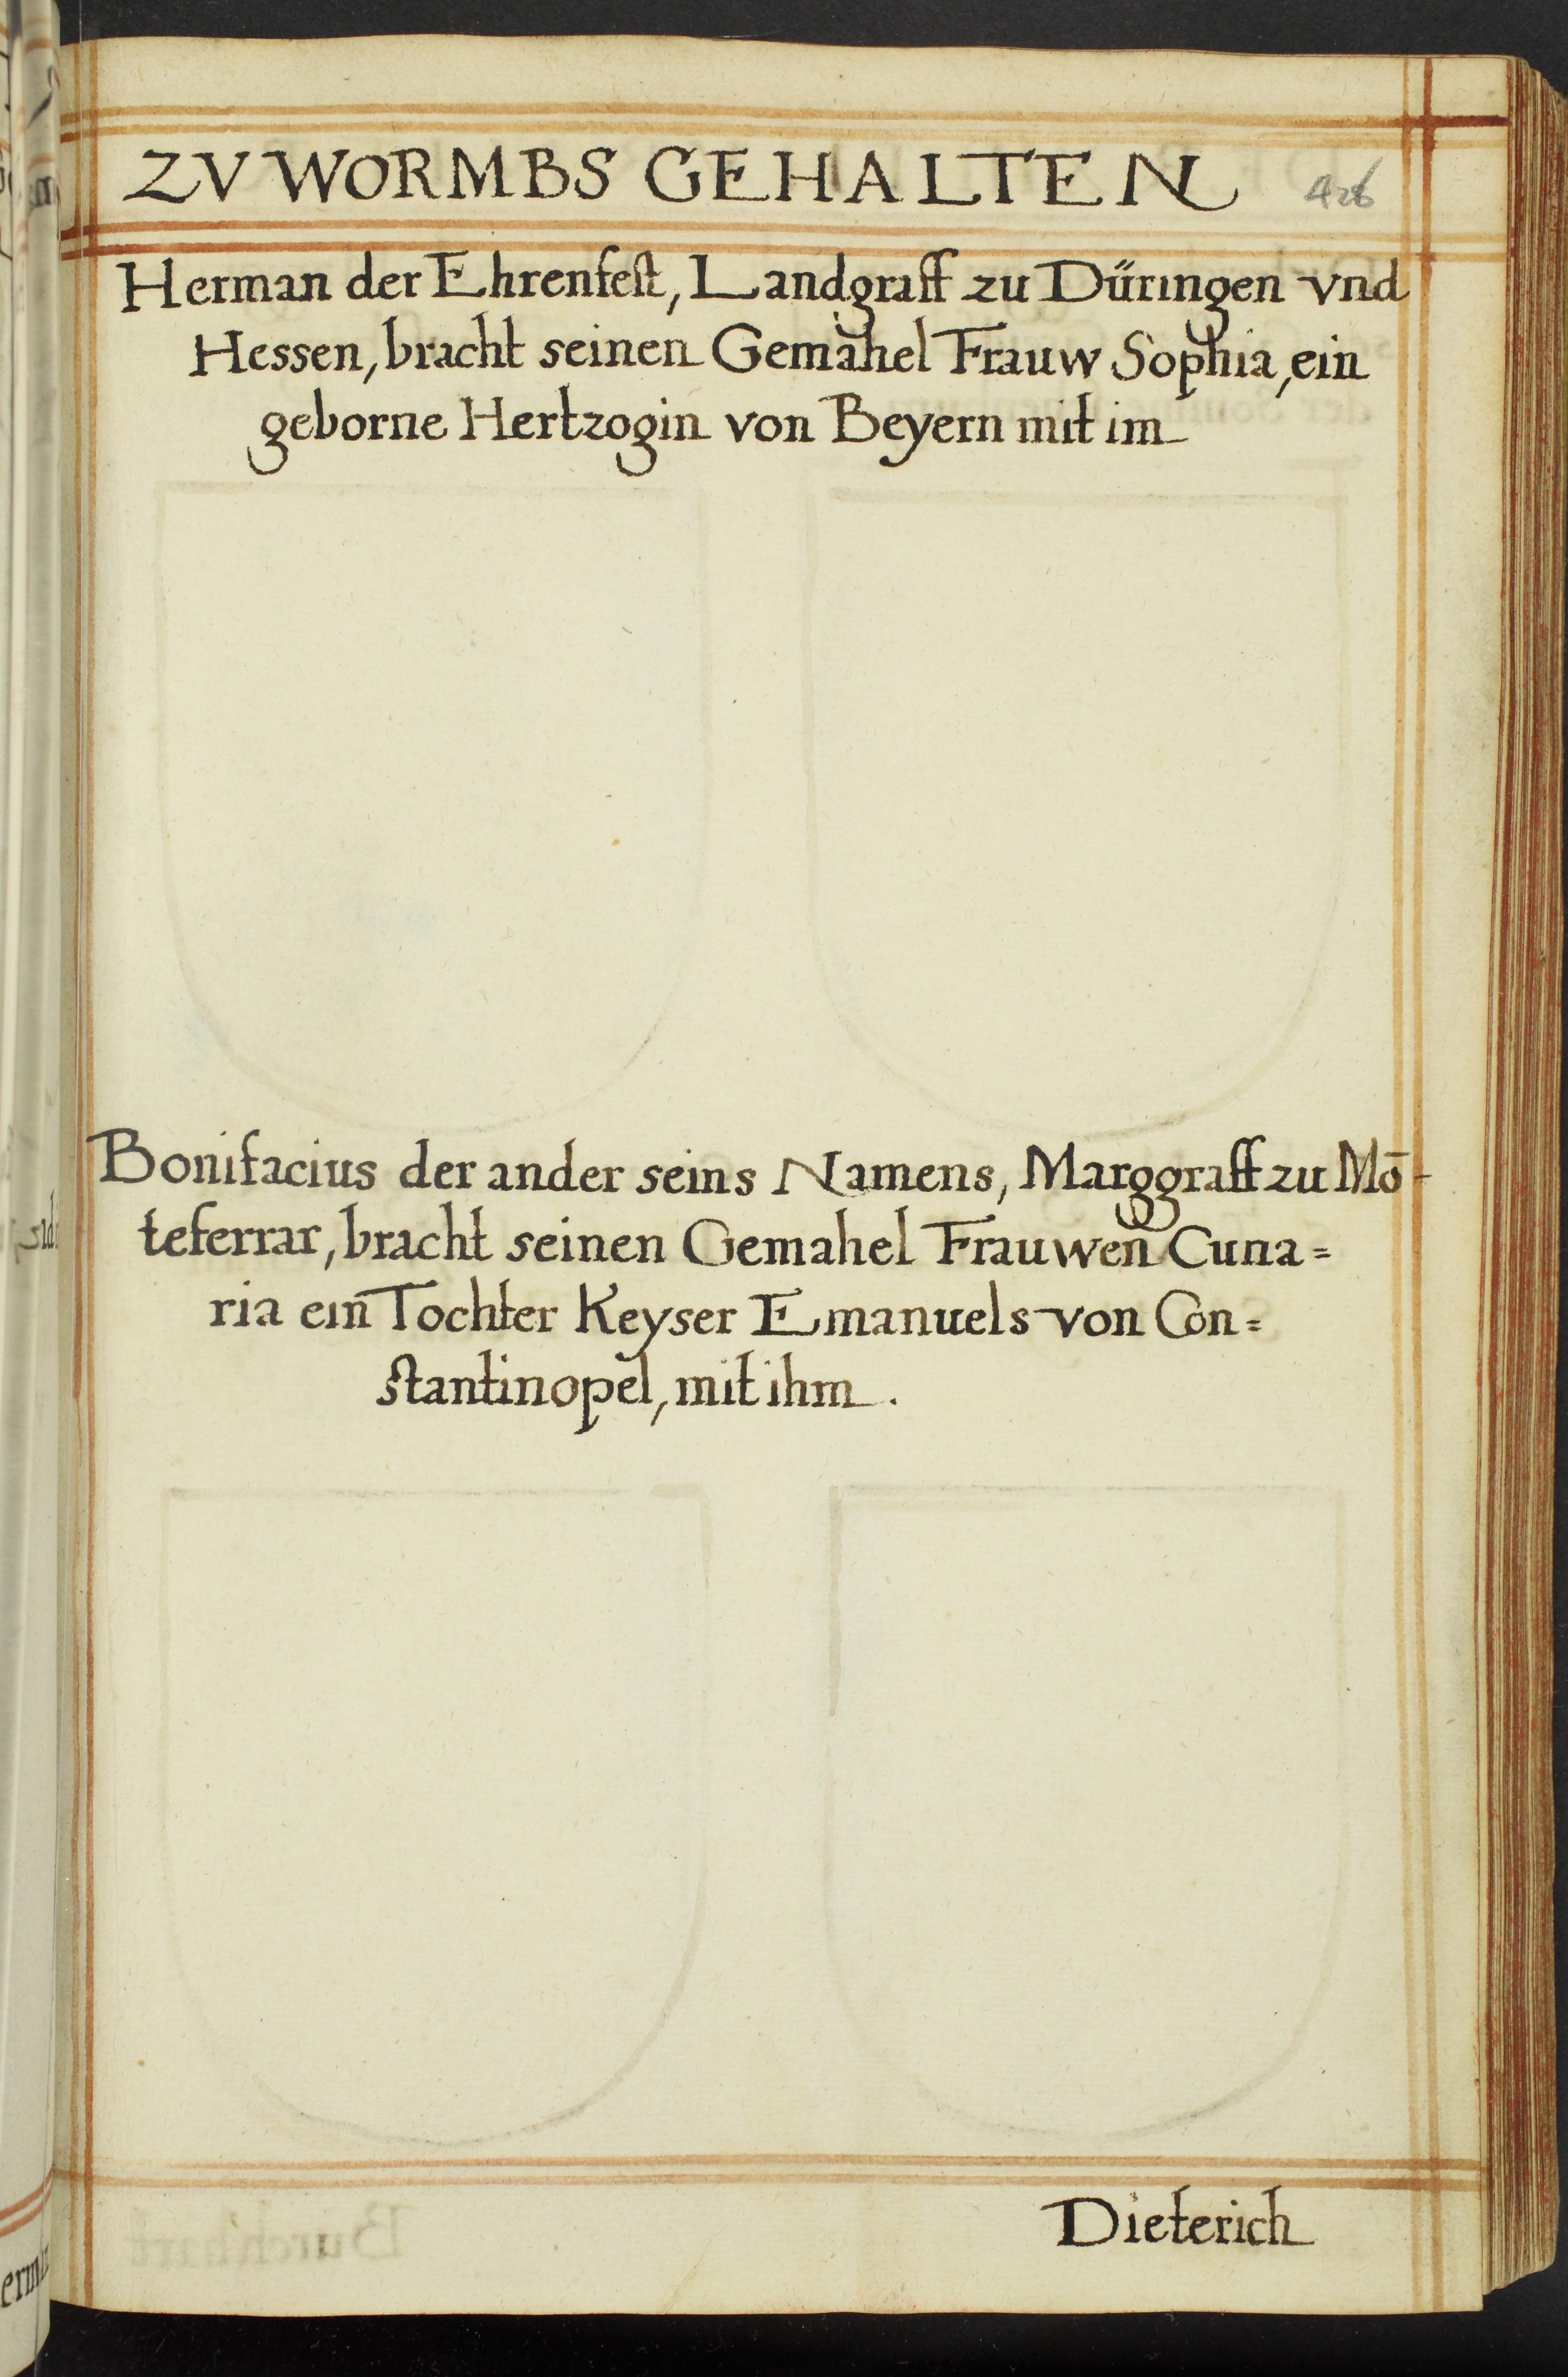 ZV WORMBS GEHALTEN 426
Herman der Ehrenfest, Landgraff zu Düringen vnd
Hessen, bracht seinen Gemahel Frauw Sophia, ein
geborne Hertzogin von Beyern mit im
Bonifacius der ander seins Namens, Marggraff zu Mō-
teferrar, bracht seinen Gemahel Frauwen Cuna=
ria ein Tochter Keyser Emanuels von Con=
stantinopel, mit ihm.
Dieterich